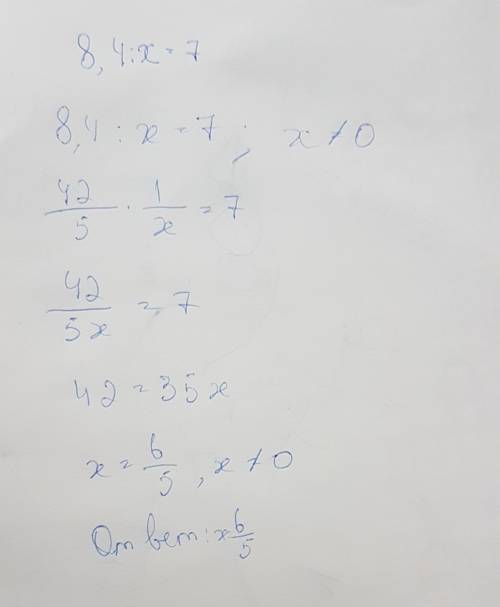 8,4:x=7
8,4:x=7; x≠0
42/5 · 1/x = 7
42/5x = 7
42=35x
x=6/5, x≠0
Ответ: x 6/5